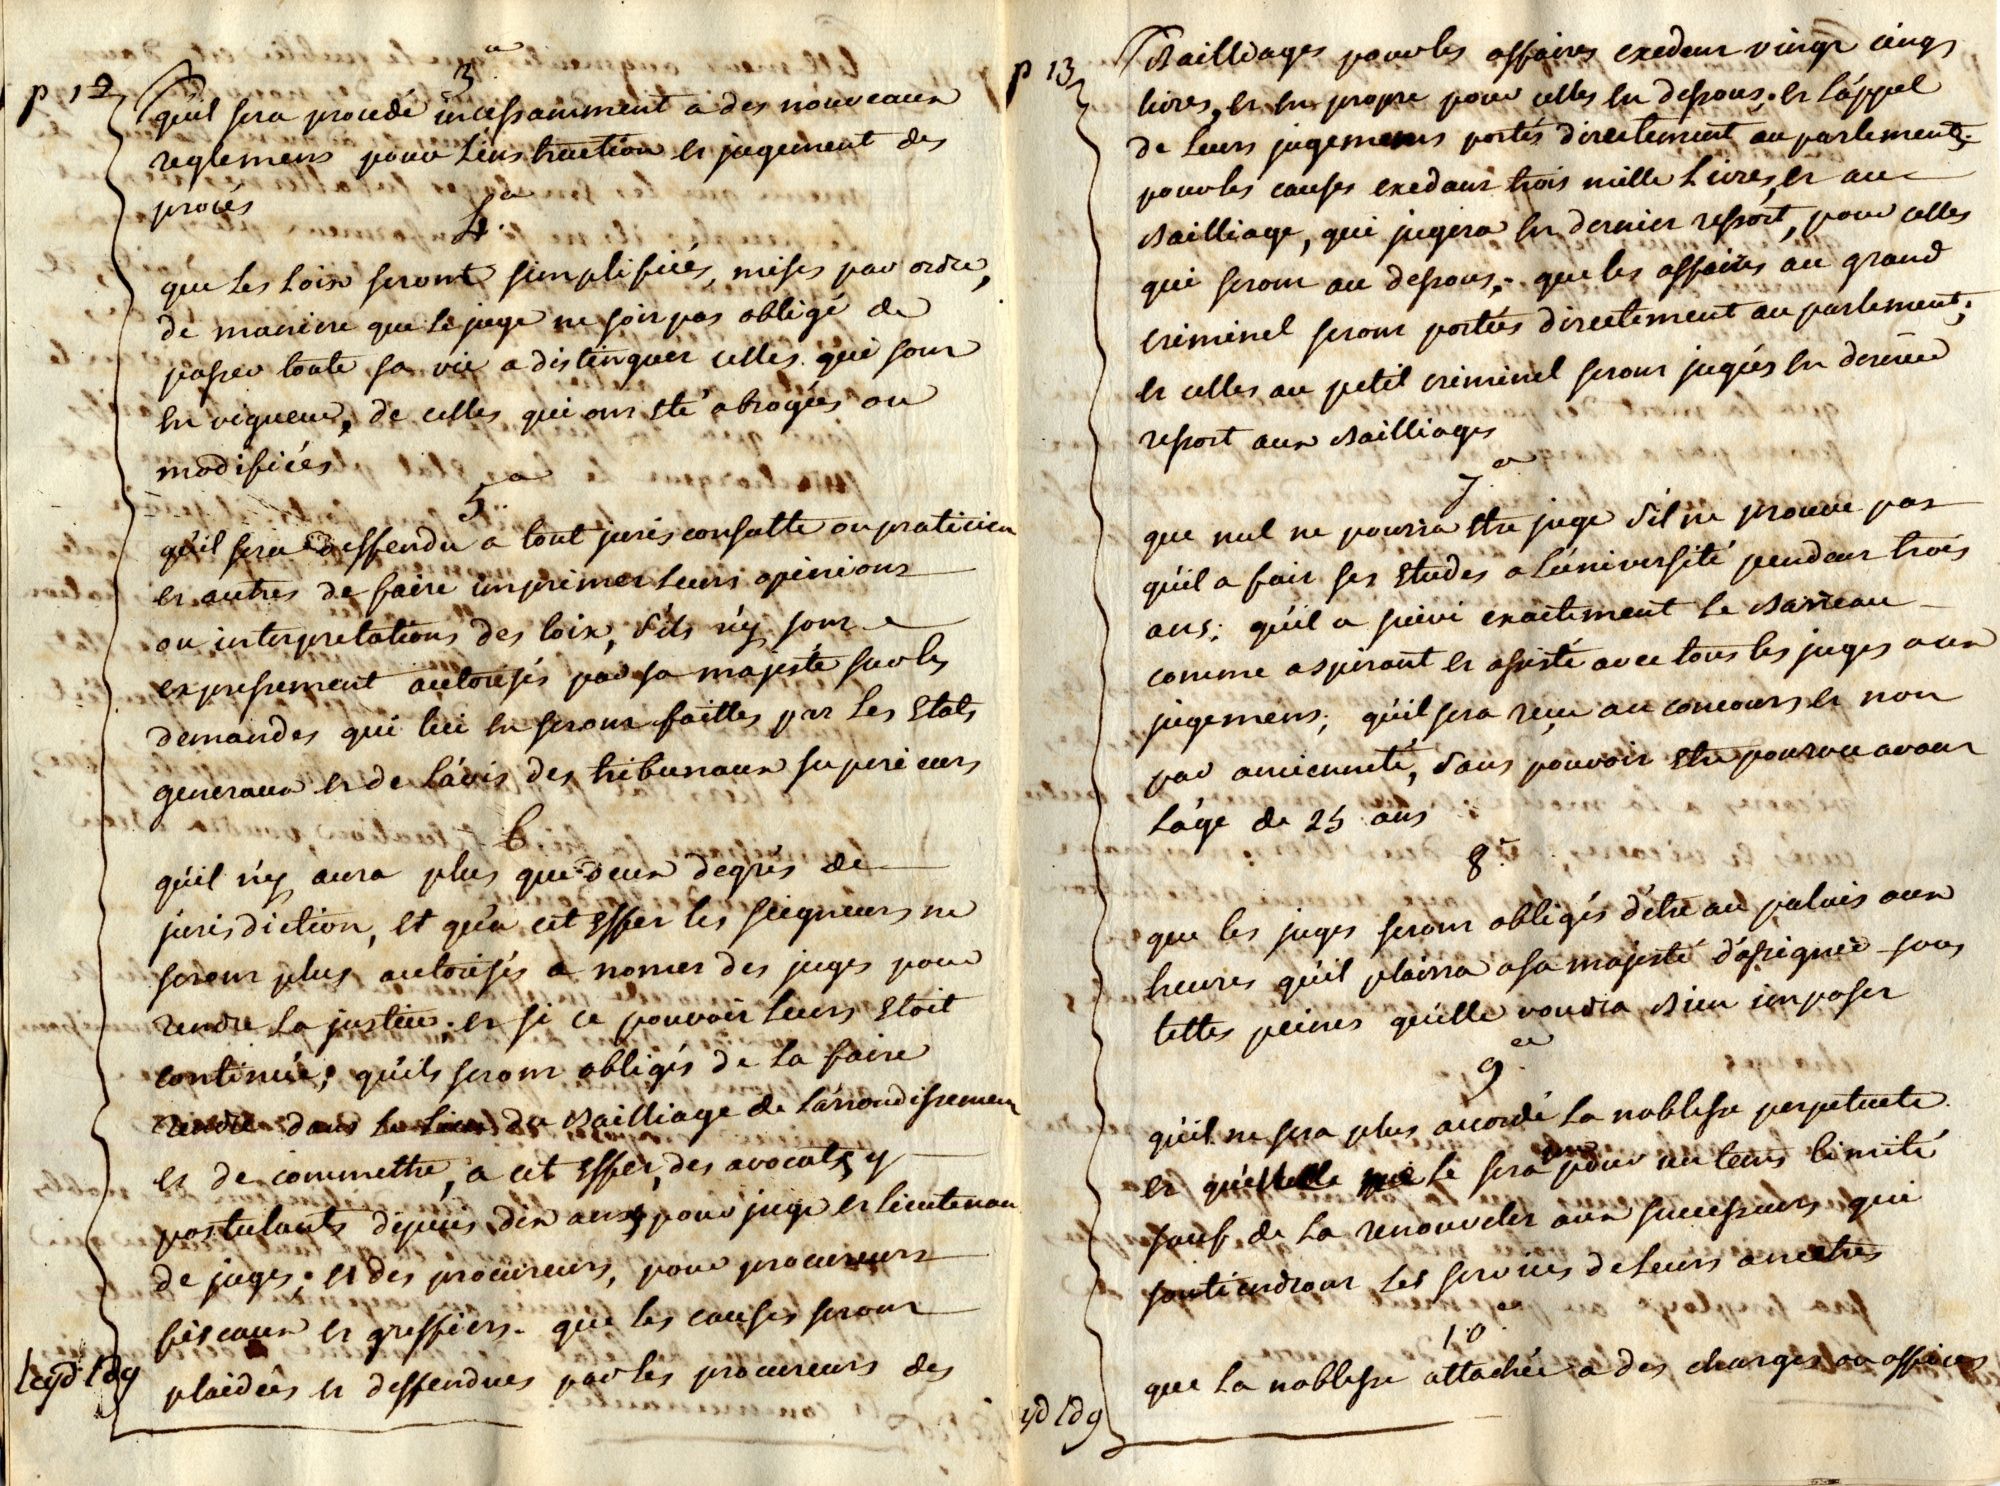 p 12
3.º
qu'il sera procedé incessamment a des nouveaux
reglemens pour L'instruction et jugement des
procès
4.º
que Les Loix seront simplifiées, mises par ordre,
de maniere que Le juge ne soit pas obligé de
passer toute sa vie a distinguer celles qui sont
en vigueur, de celles qui ont eté abrogées ou
modifiées
5.º
qu'il sera deffendu a tout jurisconsulte ou praticien
et autres de faire imprimer Leurs opinions
ou interpretations des loix, s'ils n'y sont
expressement autorisés par sa majesté sur les
demandes qui lui en seront faittes par Les Etats
generaux et de L'avis des tribunaux superieurs
6.
qu'il n'y aura plus que deux degrés de
jurisdiction, et qu'a cet effet les seigneurs ne
seront plus autorisés a nomer des juges pour
rendre La justice; et si ce pouvoir Leurs etoit
continué; qu'ils seront obligés de La faire
rendre dans Le Lieu du Bailliage de L'arrondissement
et de commettre, a cet effet, des avocats y
postulants depuis dix ans, pour juge et Lieutenant
de juges; et des procureurs, pour procureurs
fiscaux et greffiers. que les causes seront
plaidées et deffendues par les procureurs des
p 13
Bailliages pour les affaires exedent vingt cinq
livres, et en propre pour celles en dessous; et L'appel
de Leurs jugemens portés directement au parlement
pour les causes exedant trois mille Livres, et au
Bailliage, qui jugera en dernier ressort, pour celles
qui seront au dessous; que les affaires au grand
criminel seront portées directement au parlement;
et celles au petit criminel seront jugées en dernier
ressort aux Bailliages
7.º
que nul ne pourra etre juge s'il ne prouve pas
qu'il a fait ses etudes a L'université pendant trois
ans; qu'il a suivi exactement le Barreau
comme aspirant et assisté avec tous les juges aux
jugemens; qu'il sera reçu au concours et non
par ancienneté, sans pouvoir etre pourvu avant
L'age de 25 ans
8.º
que les juges seront obligés d'etre au palais aux
heures qu'il plairra a sa majesté d'assigner sous
telles peines qu'elle voudra Bien imposer
9.º
qu'il ne sera plus accordé La noblesse perpetuele
et qu'elle ne Le sera que pour un tems limité
sauf de La renouveler aux successeurs qui
soutiendront Les services de Leurs ancetres
10.º
que La noblesse attachée a des charges ou offices